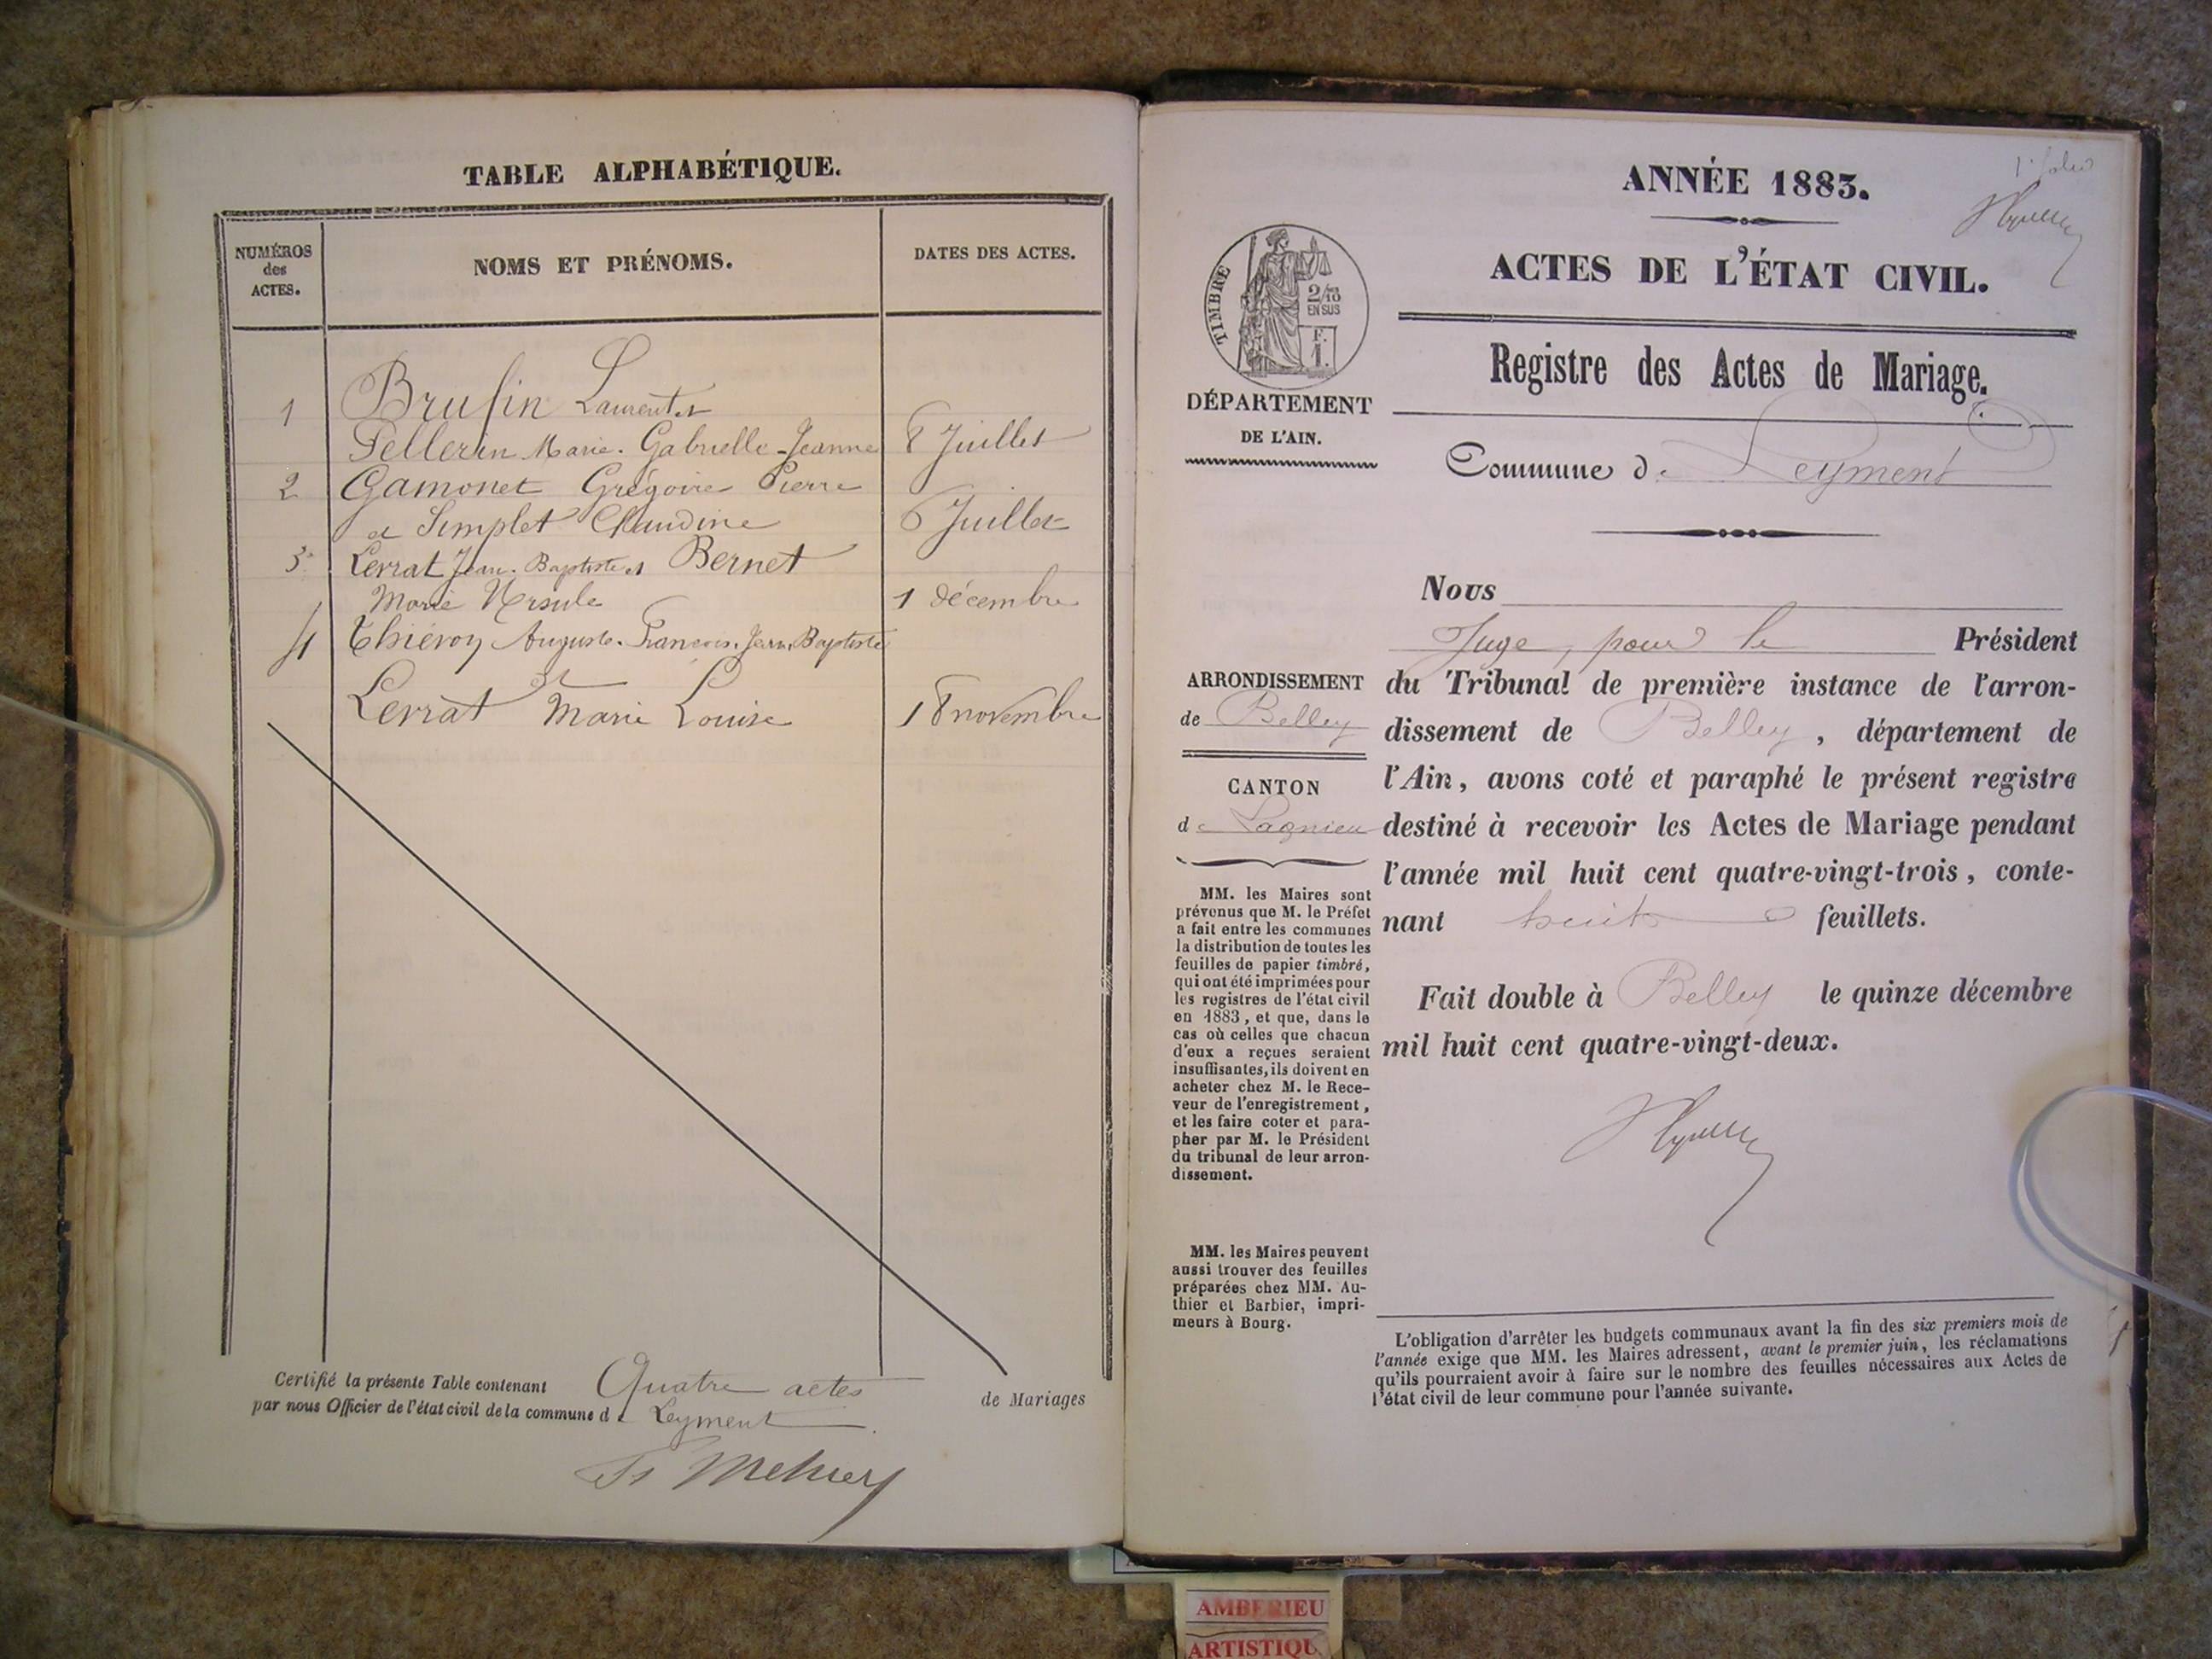 TABLE ALPHABÉTIQUE.
NUMÉROS
des
ACTES.
NOMS ET PRÉNOMS.
DATES DES ACTES.
1 Brufin Laurent et
Pellerin Marie-Gabrielle-Jeanne 8 Juillet
2 Gamonet Grégoire Pierre
et Simplet Claudine 6 Juillet
3 Lerrat Jean-Baptiste et Bernet
Marie Ursule 1 décembre
4 Thiévoz Auguste-François-Jean-Baptiste
et
Lerrat Marie Louise 18 novembre
Certifié la présente Table contenant Quatre actes de Mariages
par nous Officier de l'état civil de la commune de Leyment
ANNÉE 1883.
1er folio
ACTES DE L'ÉTAT CIVIL.
TIMBRE
2/10
EN SUS
F.
1.
DÉPARTEMENT
DE L'AIN.
Registre des Actes de Mariage.
Commune de Leyment
Nous
Juge, pour le Président
du Tribunal de première instance de l'arron-
dissement de Belley, département de
l'Ain, avons coté et paraphé le présent registre
destiné à recevoir les Actes de Mariage pendant
l'année mil huit cent quatre-vingt-trois, conte-
nant huit feuillets.
Fait double à Belley le quinze décembre
mil huit cent quatre-vingt-deux.
ARRONDISSEMENT
de Belley
CANTON
de Lagnieu
MM. les Maires sont
prévenus que M. le Préfet
a fait entre les communes
la distribution de toutes les
feuilles de papier timbré,
qui ont été imprimées pour
les registres de l'état civil
en 1883, et que, dans le
cas où celles que chacun
d'eux a reçues seraient
insuffisantes, ils doivent en
acheter chez M. le Rece-
veur de l'enregistrement,
et les faire coter et para-
pher par M. le Président
du tribunal de leur arron-
dissement.
MM. les Maires peuvent
aussi trouver des feuilles
préparées chez MM. Au-
thier et Barbier, impri-
meurs à Bourg.
L'obligation d'arrêter les budgets communaux avant la fin des six premiers mois de
l'année exige que MM. les Maires adressent, avant le premier juin, les réclamations
qu'ils pourraient avoir à faire sur le nombre des feuilles nécessaires aux Actes de
l'état civil de leur commune pour l'année suivante.
AMBERIEU
ARTISTIQU